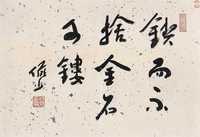 鍥而不
捨金石
可鏤